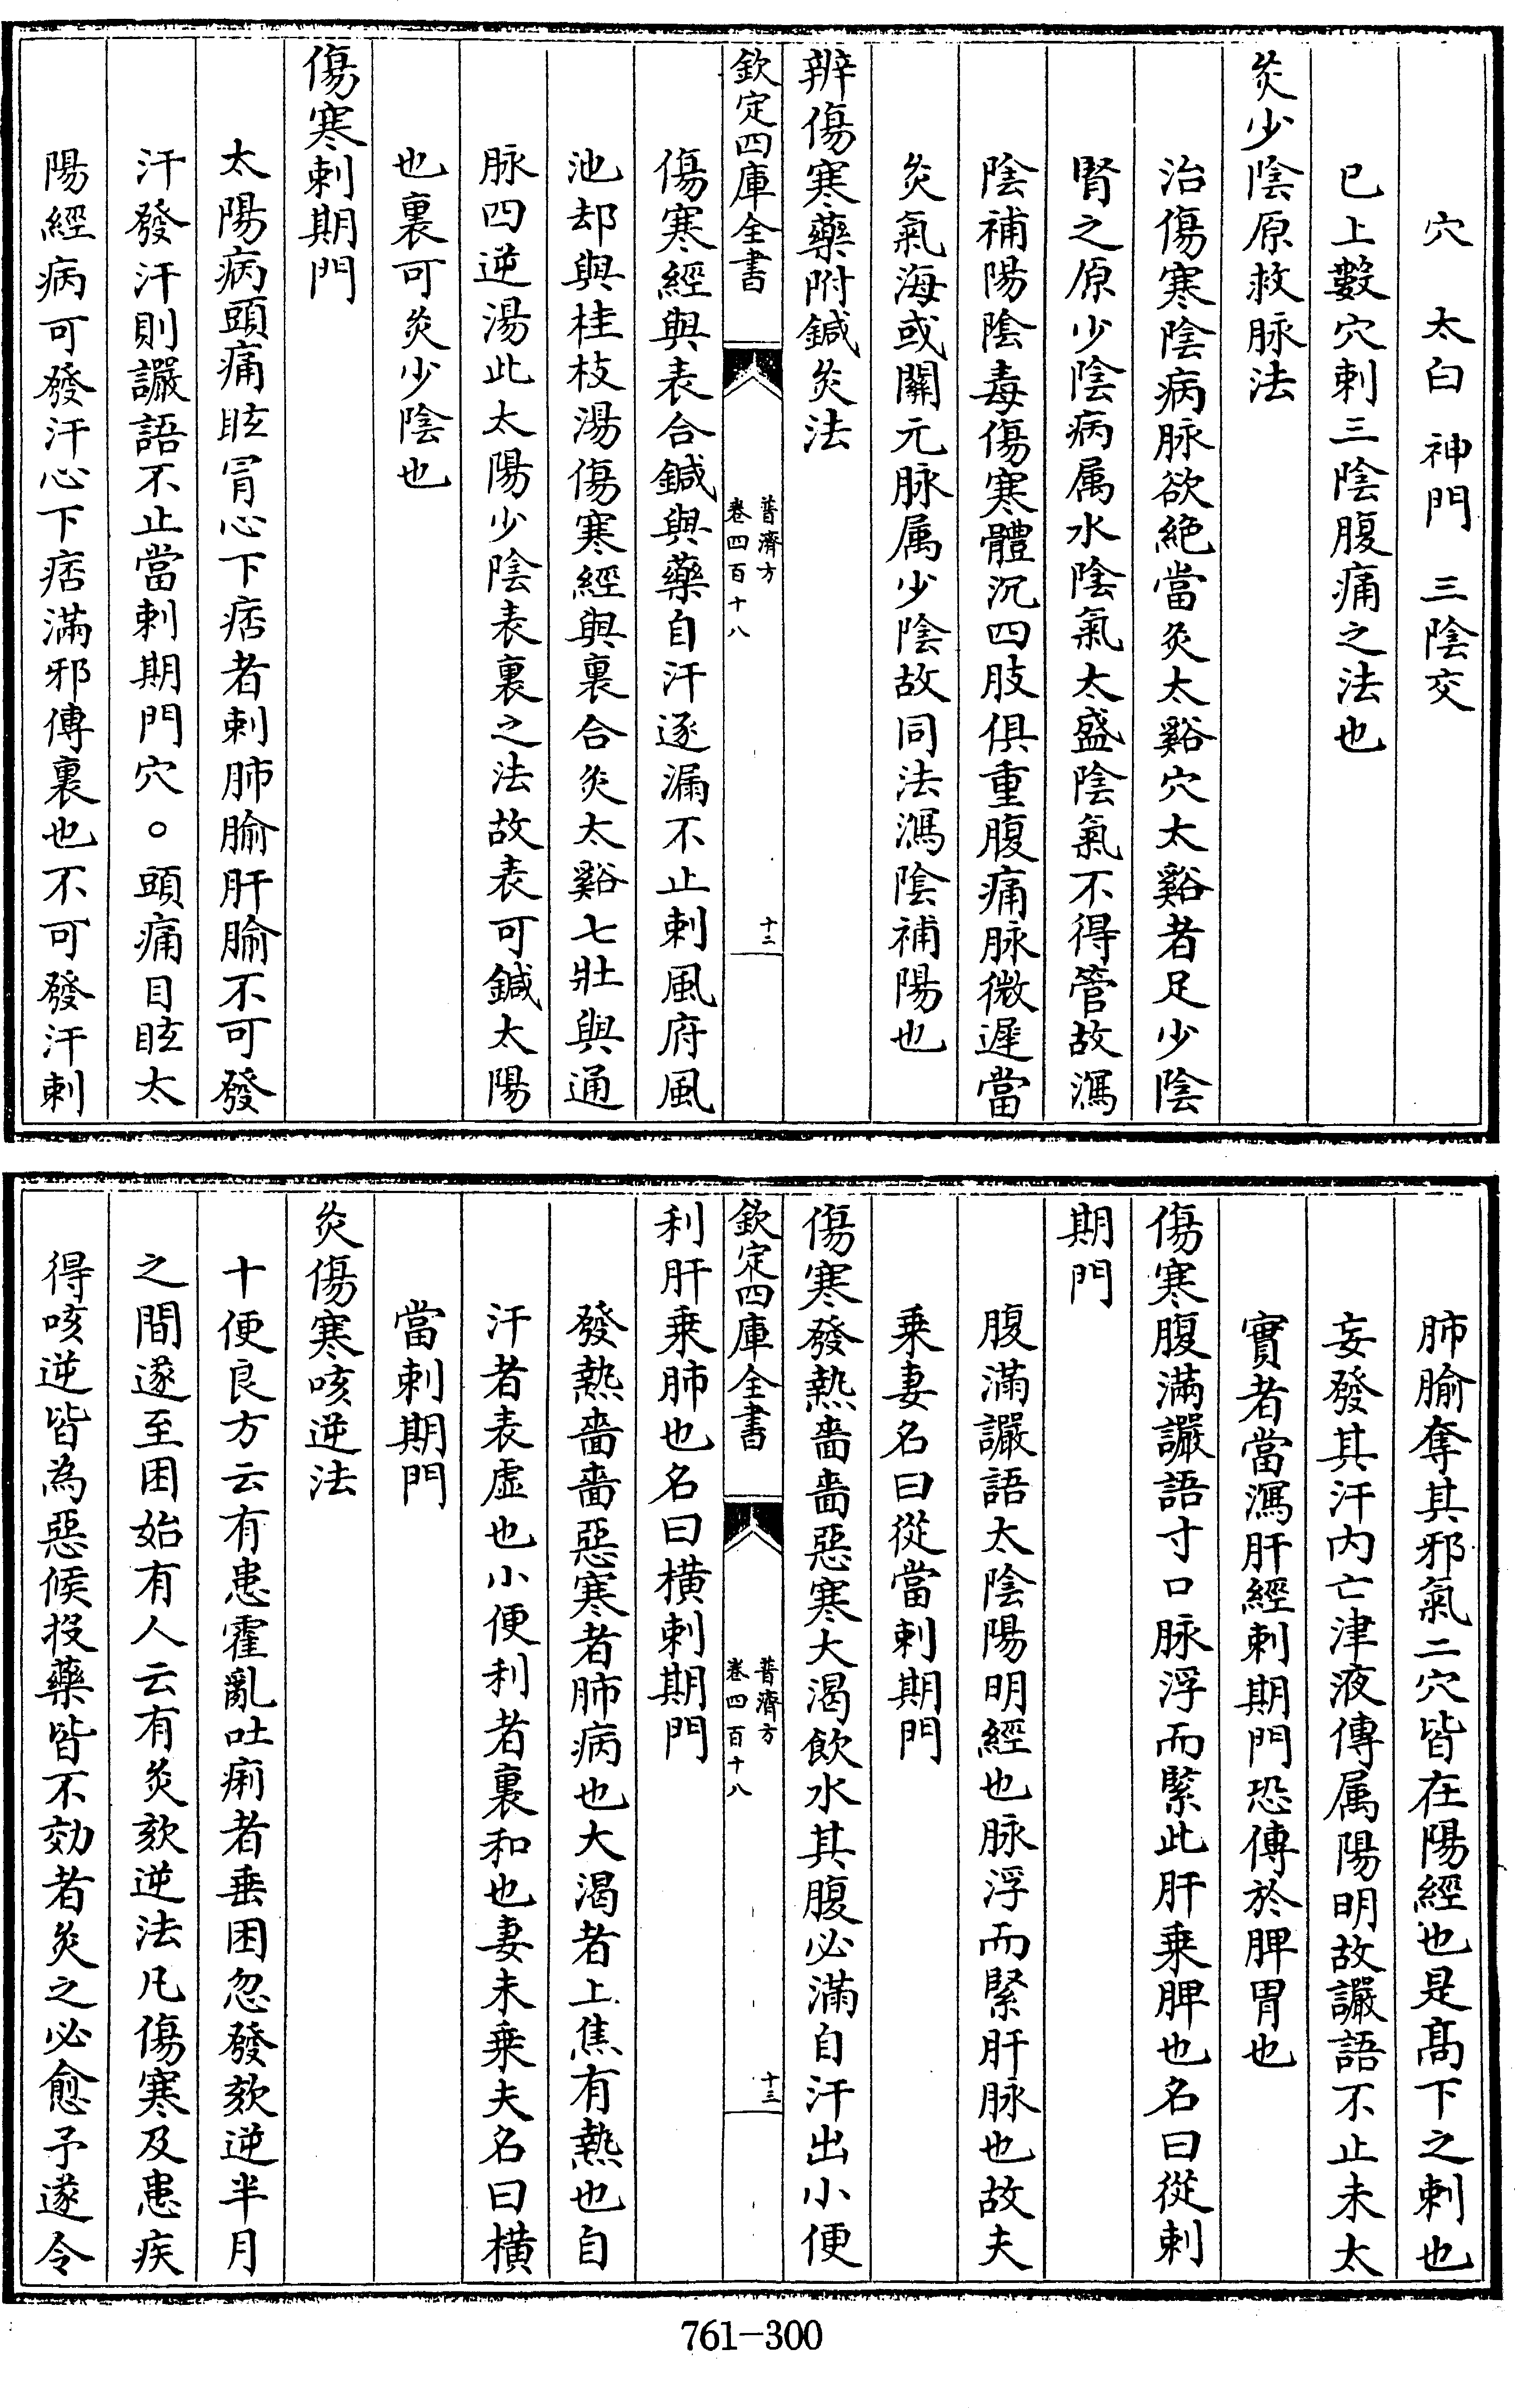 穴　太白　神門　三陰交
已上數穴刺三陰腹痛之法也
灸少陰原救脉法
治傷寒陰病脉欲絶當灸太谿穴太谿者足少陰
腎之原少陰病属水陰氣太盛陰氣不得管故瀉
陰補陽陰毒傷寒體沉四肢俱重腹痛脉微遲當
灸氣海或關元脉属少陰故同法瀉陰補陽也
辨傷寒藥附鍼灸法
欽定四庫全書
普濟方
卷四百十八
十二
傷寒經與表合鍼與藥自汗逐漏不止刺風府風
池却與桂枝湯傷寒經與裏合灸太谿七壯與通
脉四逆湯此太陽少陰表裏之法故表可鍼太陽
也裏可灸少陰也
傷寒刺期門
太陽病頭痛眩冒心下痞者刺肺腧肝腧不可發
汗發汗則讝語不止當刺期門穴。頭痛目眩太
陽經病可發汗心下痞滿邪傳裏也不可發汗刺
肺腧奪其邪氣二穴皆在陽經也是髙下之刺也
妄發其汗内亡津液傳属陽明故讝語不止未太
實者當瀉肝經刺期門恐傳於脾胃也
傷寒腹滿讝語寸口脉浮而緊此肝乗脾也名曰從刺
期門
腹滿讝語太陰陽明經也脉浮而緊肝脉也故夫
乗妻名曰從當刺期門
傷寒發熱嗇嗇惡寒大渴飲水其腹必滿自汗出小便
欽定四庫全書
普濟方
卷四百十八
十三
利肝乗肺也名曰橫刺期門
發熱嗇嗇惡寒者肺病也大渴者上焦有熱也自
汗者表虚也小便利者裏和也妻未乗夫名曰橫
當刺期門
灸傷寒咳逆法
十便良方云有患霍亂吐痢者垂困忽發欬逆半月
之間遂至困始有人云有灸欬逆法凡傷寒及患疾
得咳逆皆為惡候投藥皆不効者灸之必愈予遂令
761-300